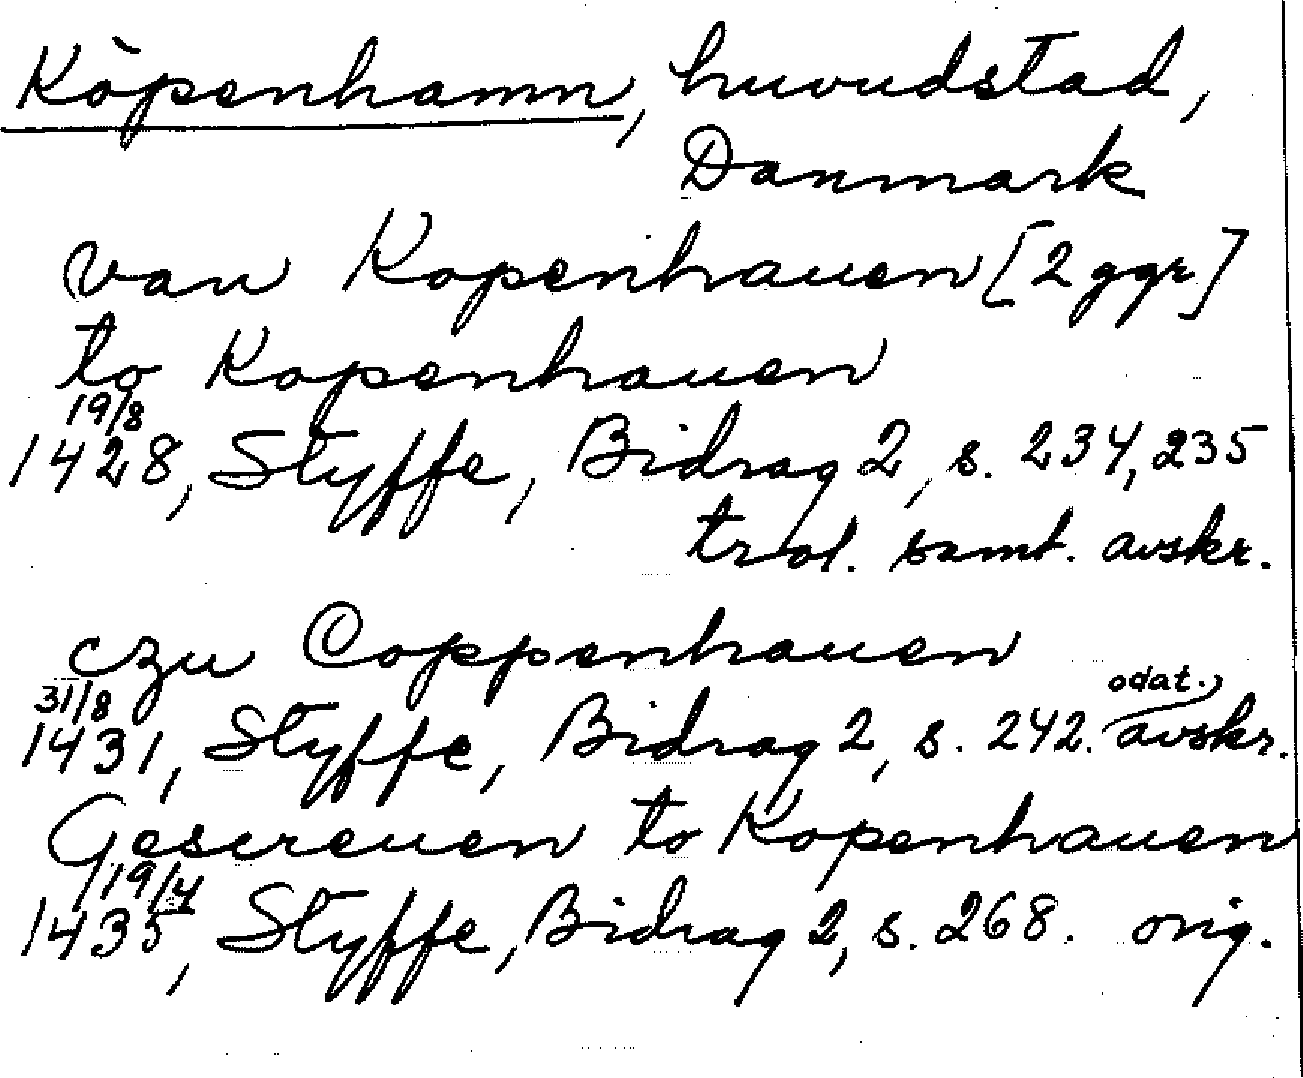 Köpenhamn, huvudstad,
Danmark
van Kopenhauen [2 ggr]
to Kopenhauen
19/8
1428, Styffe, Bidrag 2, s. 234, 235
trol. samt. avskr.
czu Coppenhauen
31/8 odat.,
1431, Styffe, Bidrag 2, s. 242. avskr.
Gescreuen to Kopenhauen
19/4
1435, Styffe, Bidrag 2, s. 268. orig.